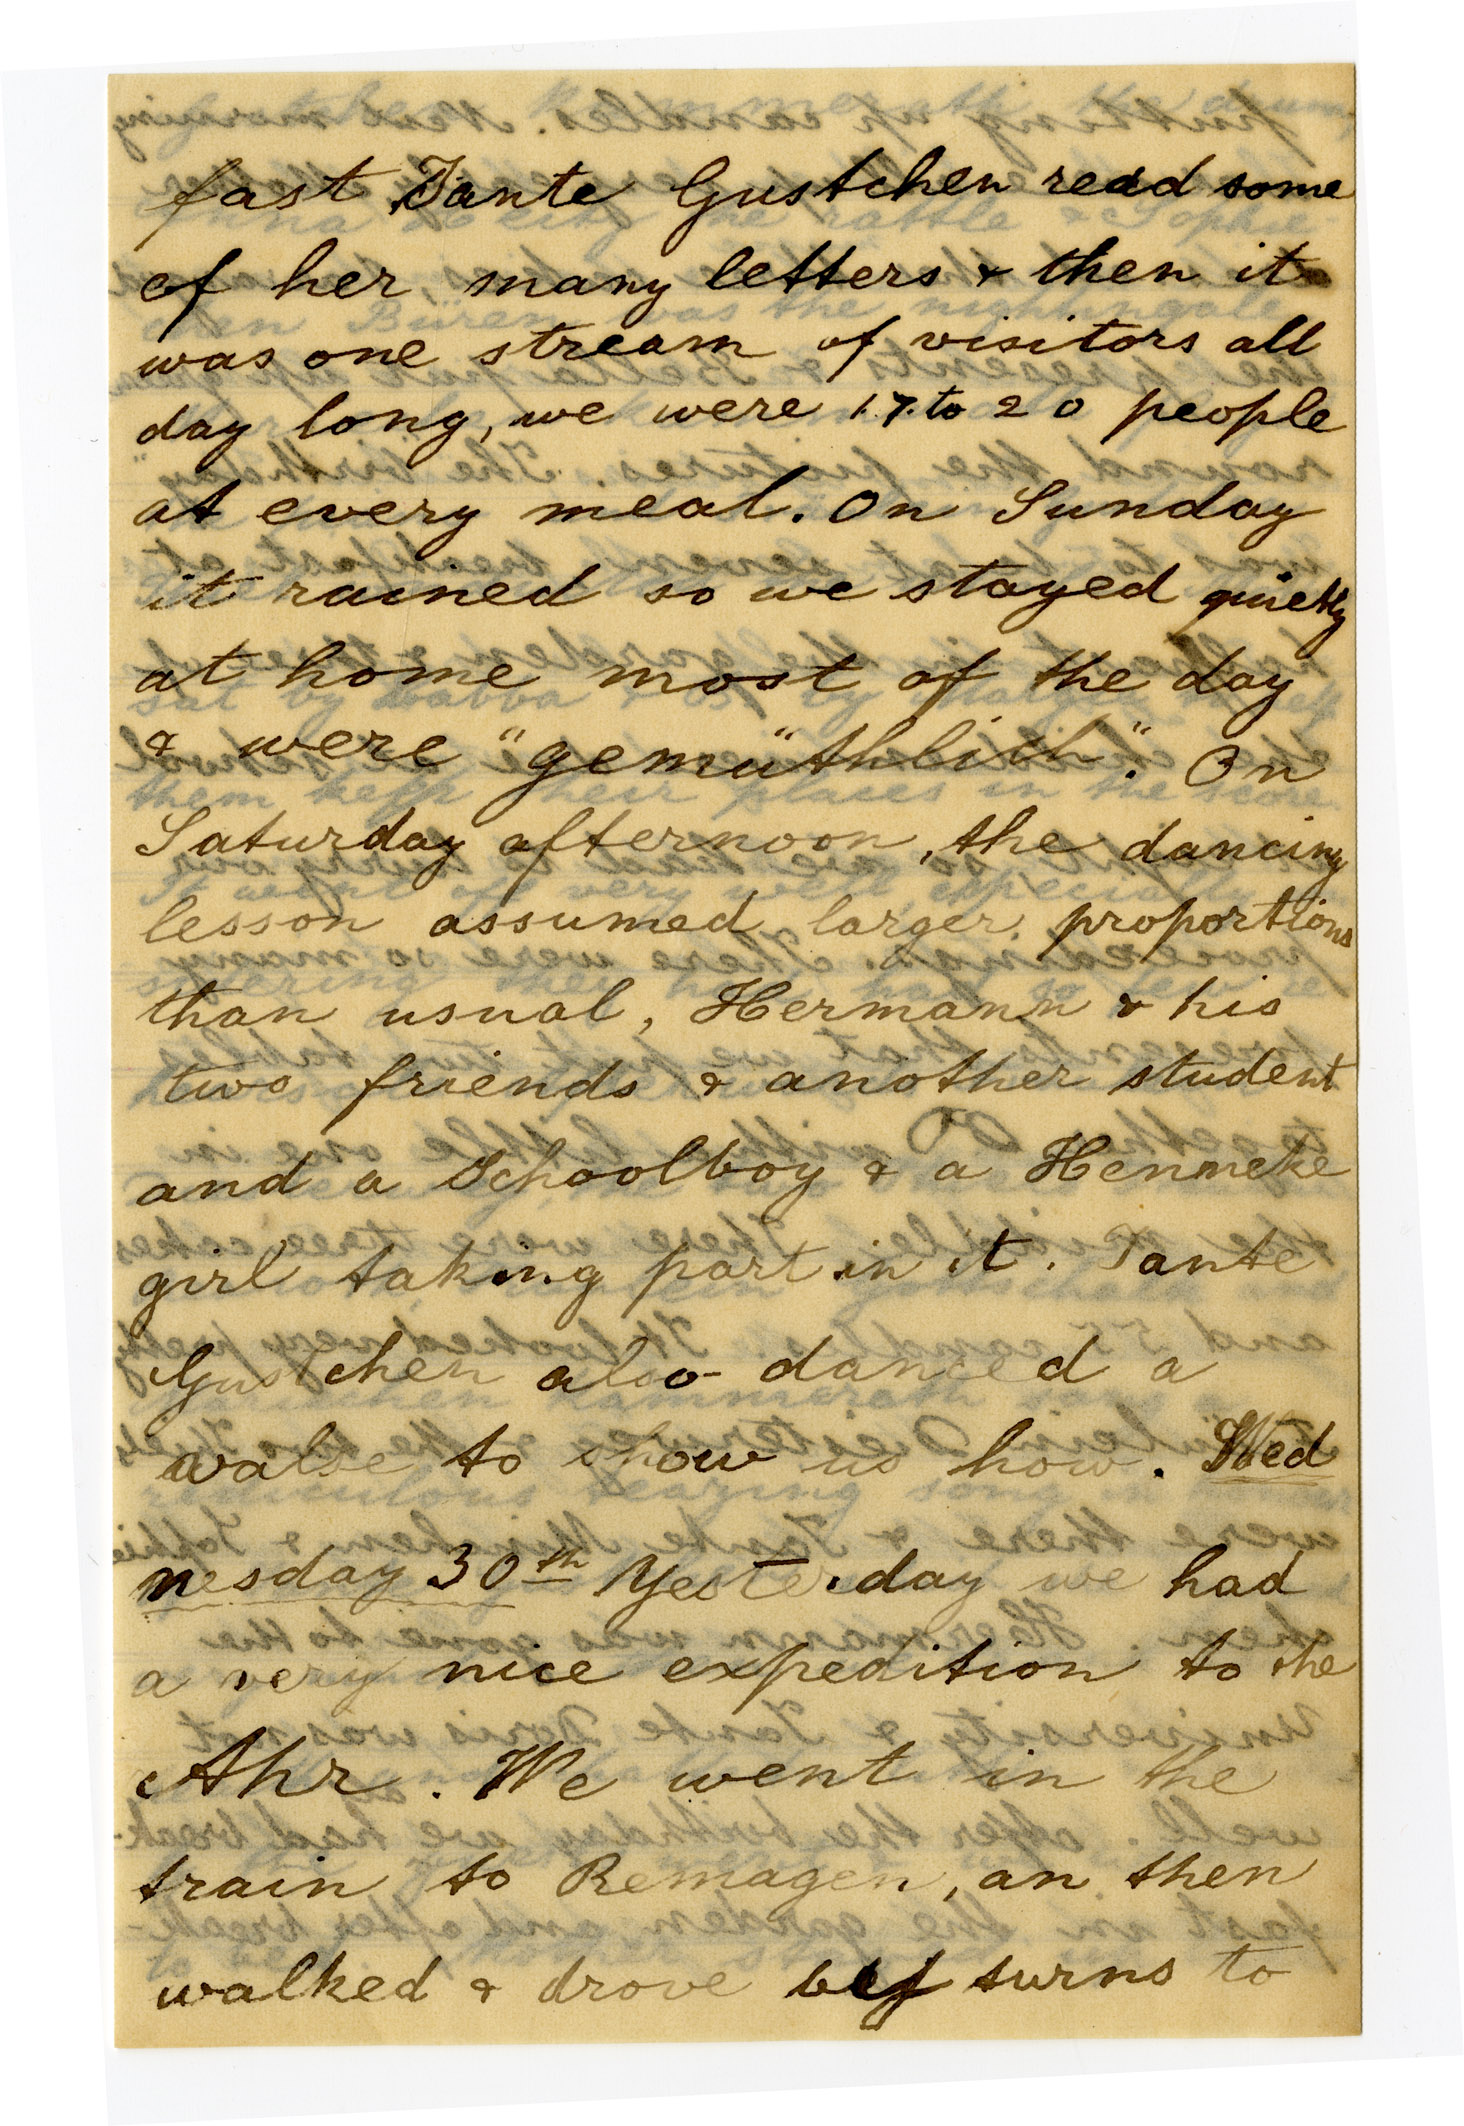 fast Tante Gustchen read some
of her many letters & then it
was one stream of visitors all
day long, we were 17 to 20 people
at every meal. On Sunday
it rained so we stayed quietly
at home most of the day
& were "gemüthlich". On
Saturday afternoon, the dancing
lesson assumed larger proportions
than usual, Hermann & his
two friends & another student
and a Schoolboy & a Henmeke
girl taking part in it. Tante
Gustchen also danced a
walse to show us how. Wed
nesday 30th Yesterday we had
a very nice expedition to the
Ahr. We went in the
train to Remagen, an then
walked & drove by turns to